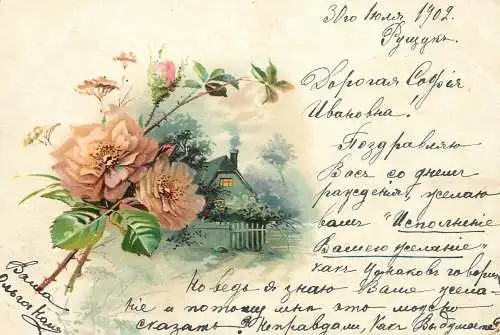 30го Iюля 1902.
Рущукъ.
Дорогая Софія
Ивановна!
Поздравляю
Васъ со днемъ
рожденія, желаю
вамъ "Исполненіе
Вашего желаніе"
какъ говори
Но ведь я знаю Ваше жела-
ніе и потому мнѣ это можно
сказать Неправдали, Какъ Вы думаете
Ваша
Ольга